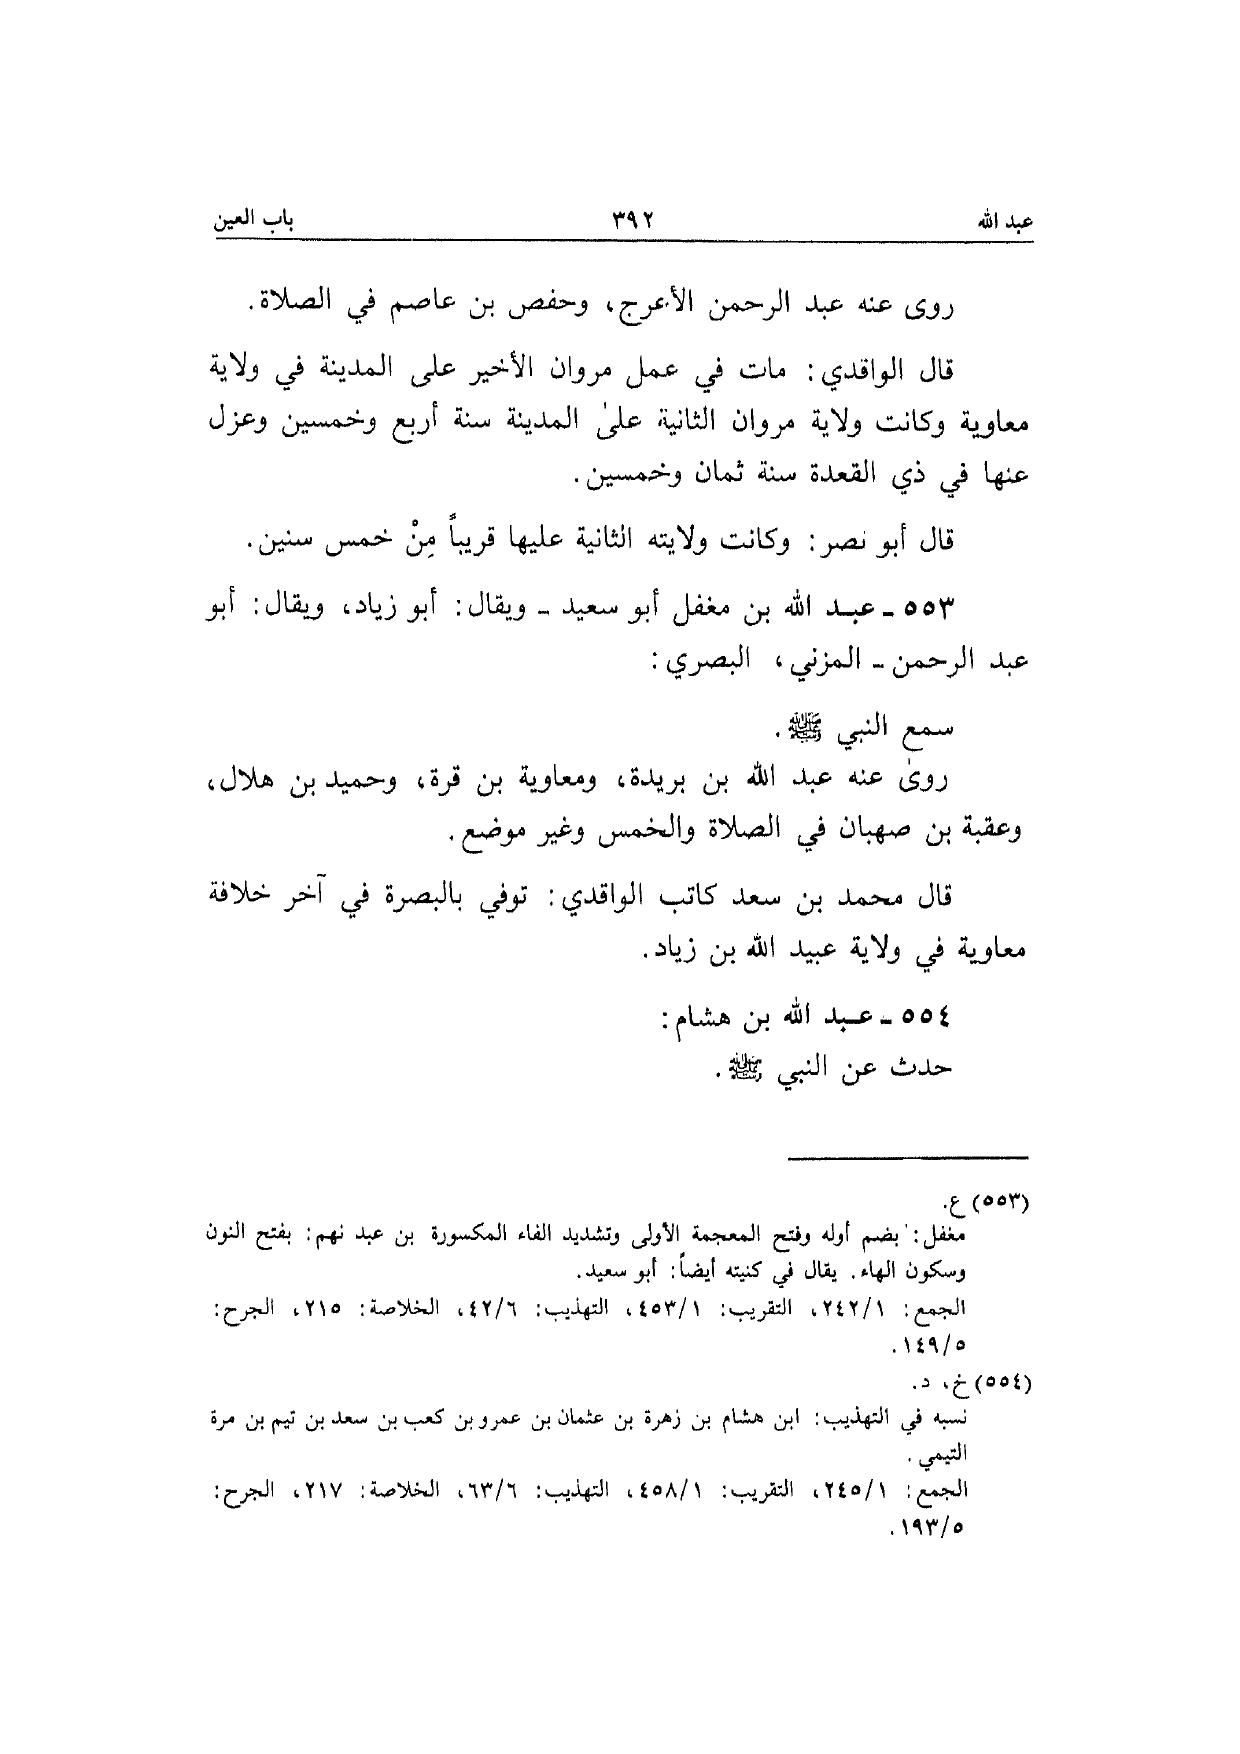 عبد الله ٣٩٢ باب العين
روى عنه عبد الرحمن الأعرج، وحفص بن عاصم في الصلاة.
قال الواقدي: مات في عمل مروان الأخير على المدينة في ولاية
معاوية وكانت ولاية مروان الثانية علىٰ المدينة سنة أربع وخمسين وعزل
عنها في ذي القعدة سنة ثمان وخمسين.
قال أبو نصر: وكانت ولايته الثانية عليها قريباً مِنْ خمس سنين.
٥٥٣ - عبد الله بن مغفل أبو سعيد - ويقال: أبو زياد، ويقال: أبو
عبد الرحمن - المزني، البصري:
سمع النبي ﷺ.
روىٰ عنه عبد الله بن بريدة، ومعاوية بن قرة، وحميد بن هلال،
وعقبة بن صهبان في الصلاة والخمس وغير موضع.
قال محمد بن سعد كاتب الواقدي: توفي بالبصرة في آخر خلافة
معاوية في ولاية عبيد الله بن زياد.
٥٥٤ - عبد الله بن هشام:
حدث عن النبي ﷺ.
(٥٥٣) ع.
مغفل: بضم أوله وفتح المعجمة الأولى وتشديد الفاء المكسورة بن عبد نهم: بفتح النون
وسكون الهاء. يقال في كنيته أيضاً: أبو سعيد.
الجمع: ٢٤٢/١، التقريب: ٤٥٣/١، التهذيب: ٤٢/٦، الخلاصة: ٢١٥، الجرح:
١٤٩/٥.
(٥٥٤) خ، د.
نسبه في التهذيب: ابن هشام بن زهرة بن عثمان بن عمرو بن كعب بن سعد بن تيم بن مرة
التيمي.
الجمع: ٢٤٥/١، التقريب: ٤٥٨/١، التهذيب: ٦٣/٦، الخلاصة: ٢١٧، الجرح:
١٩٣/٥.